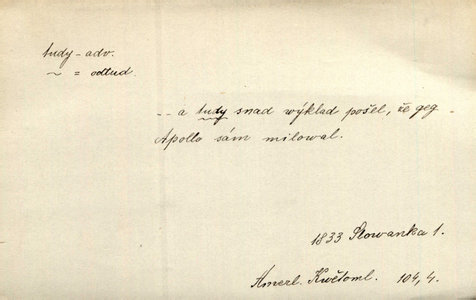 tudy - adv.
~ = odtud
-- a tudy snad wýklad pošel, že geg
Apollo sám milowal.
1833 Slowanka 1.
Amerl. Kwětoml. 104,4.